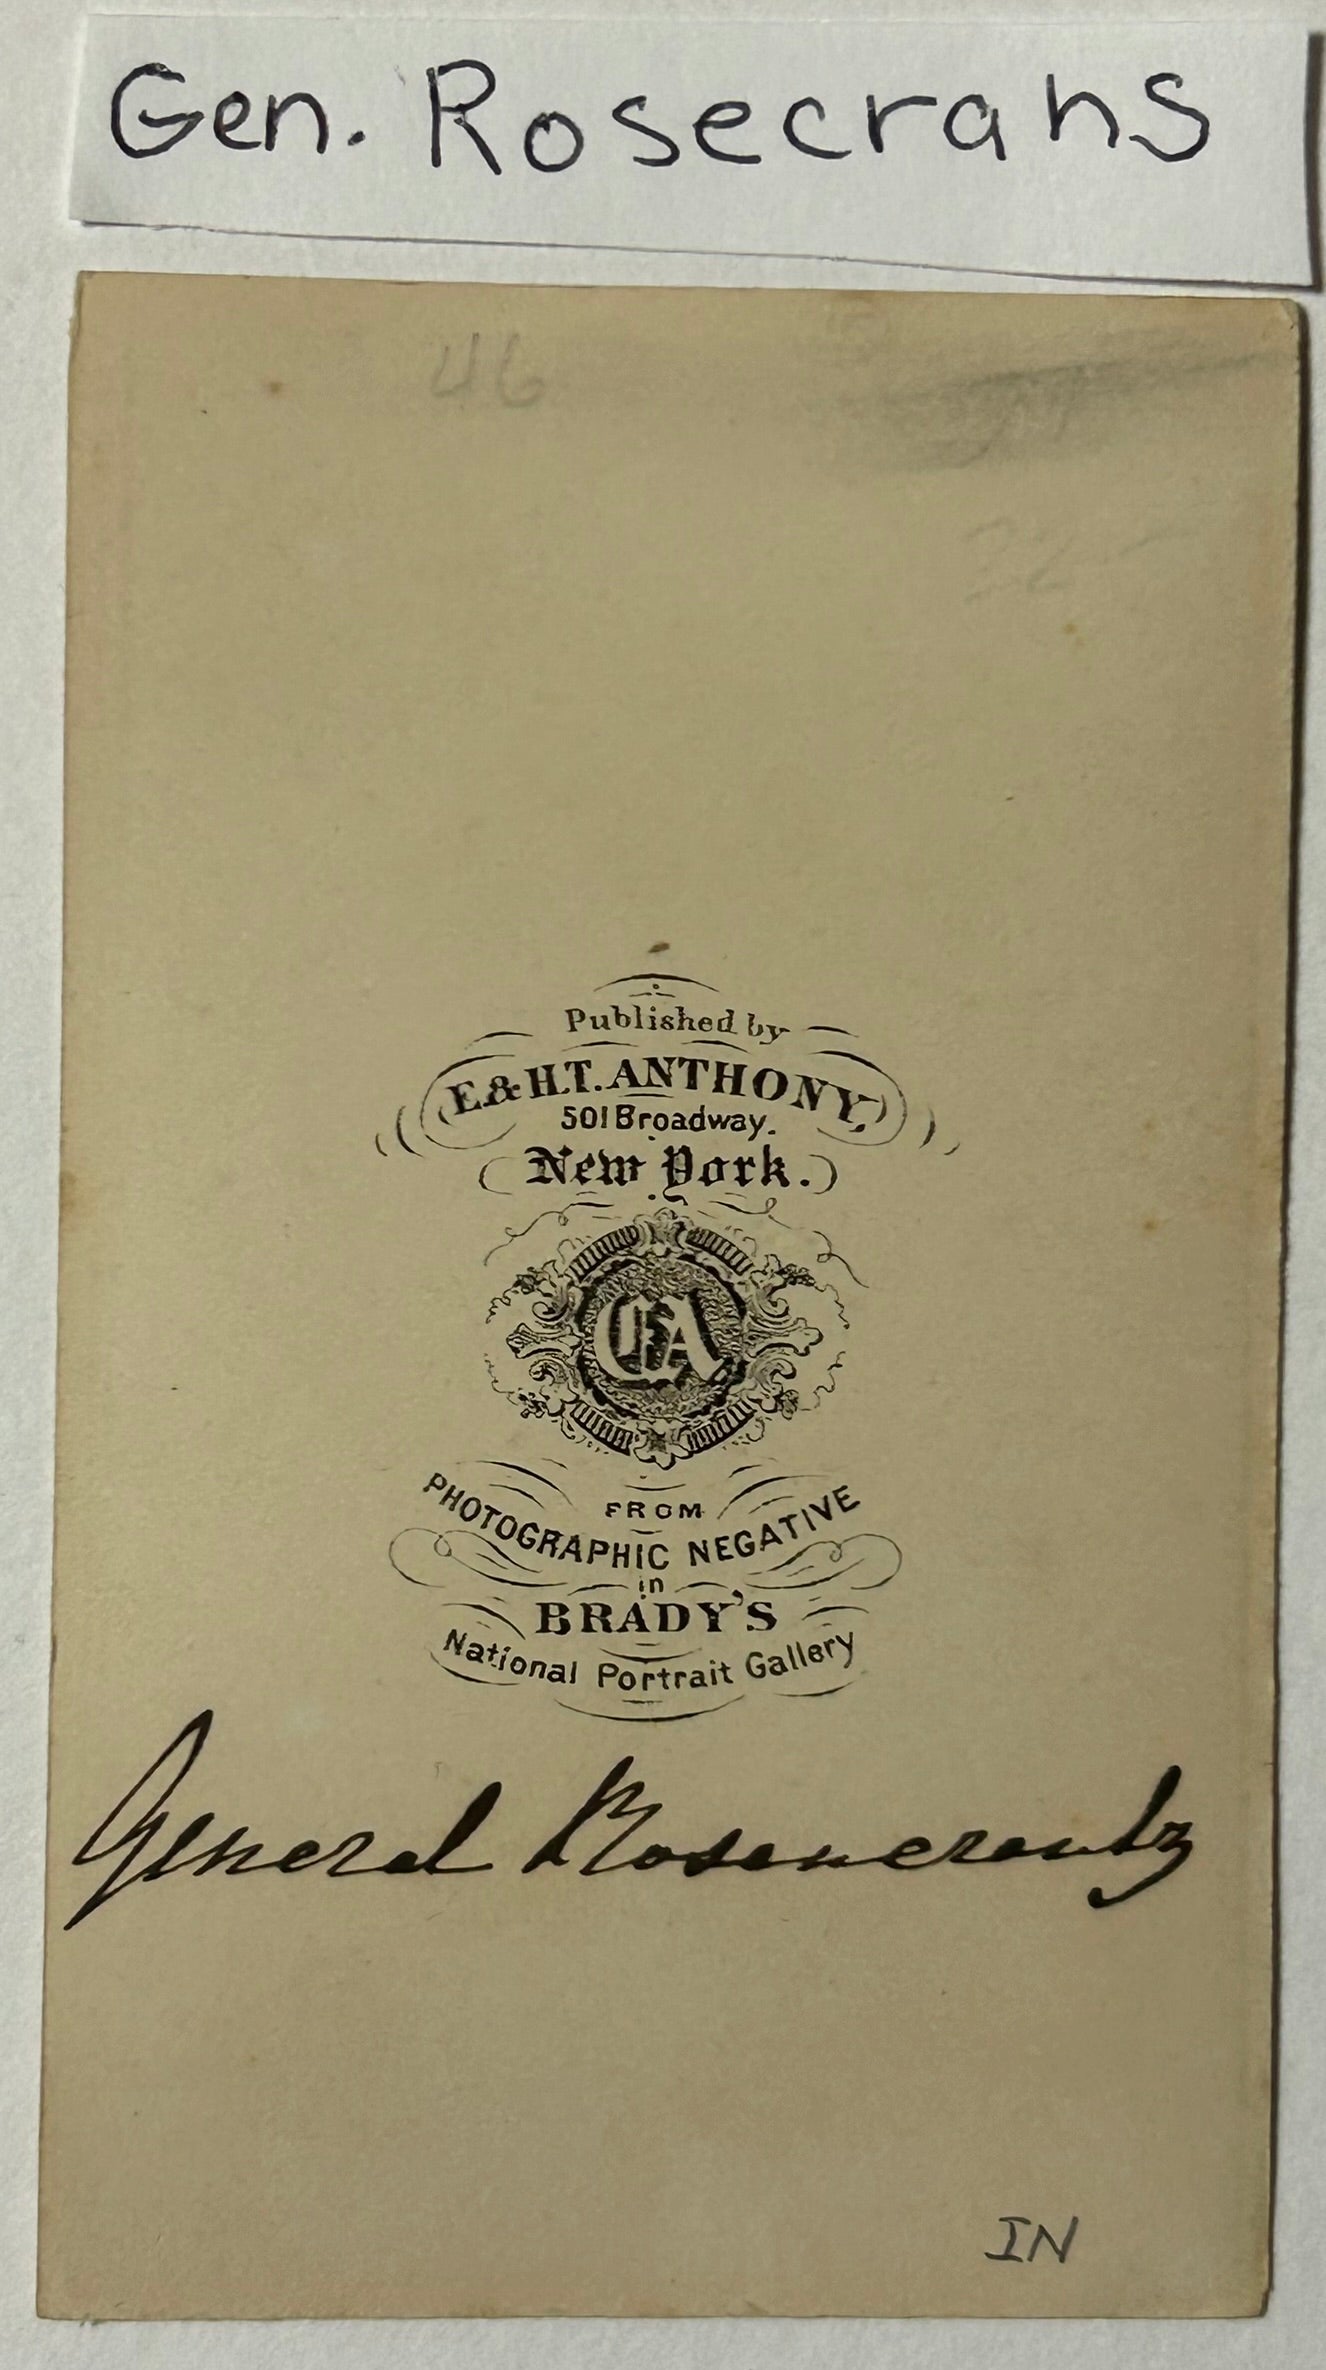 Gen. Rosecrans
46
Published by
E. & H.T. ANTHONY.
501 Broadway.
New York.
EA
FROM
PHOTOGRAPHIC NEGATIVE
in
BRADY'S
National Portrait Gallery
General Rosenerantz
IN